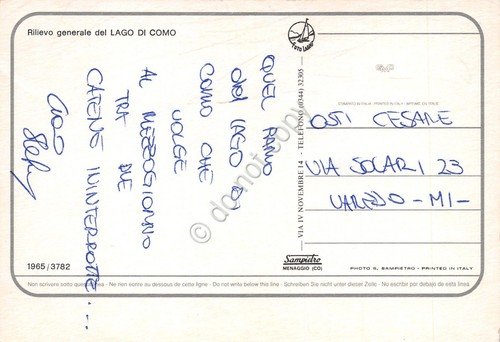 Rilievo generale del LAGO DI COMO
QUEL RAMO
DEL LAGO DI
COMO CHE
VOLGE
AL MEZZOGIORNO
TRA DUE
CATENE ININTERROTTE....
CIAO
OSTI CESARE
VIA SOLARI 23
VAREDO - MI -
FOTO LARIO
- VIA IV NOVEMBRE 14 - TELEFONO (0344) 32305 -
Sampietro
MENAGGIO (CO)
PHOTO S. SAMPIETRO - PRINTED IN ITALY
1965/3782
Non scrivere sotto questa linea - Ne rien écrire au dessous de cette ligne - Do not write below this line - Schreiben Sie nicht unter dieser Zeile - No escribir por debajo de esta línea